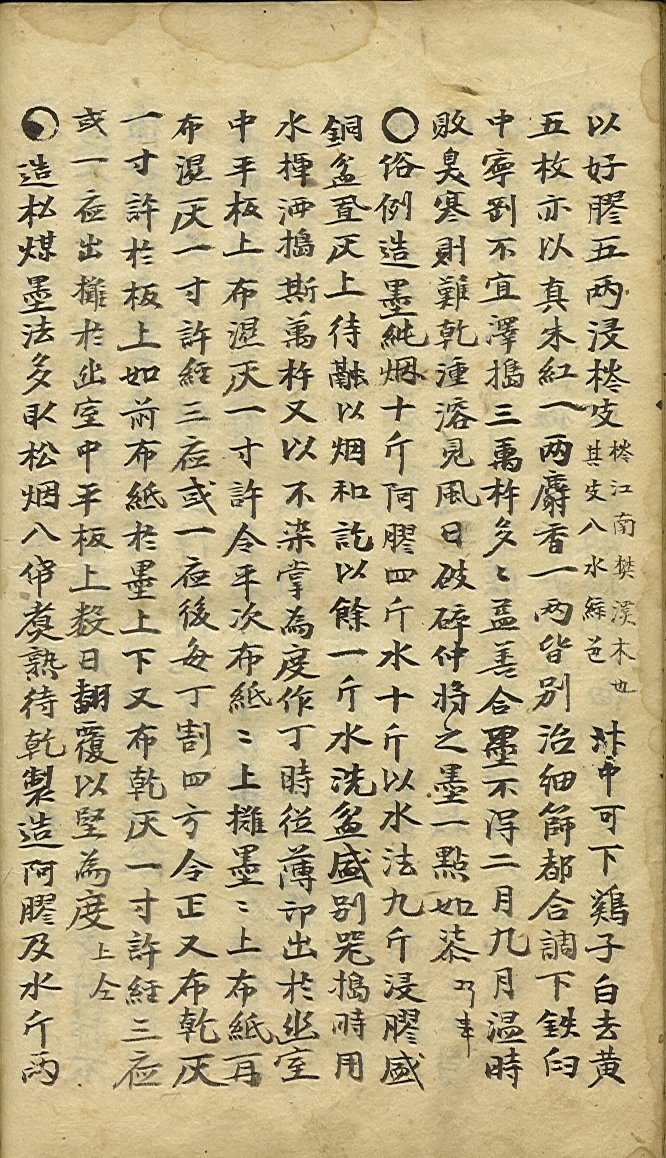 以好膠五兩浸梣皮梣江南樊溪木也其皮入水綠色汁中可下鷄子白去黃
五枚亦以真朱紅一兩麝香一兩皆別治細篩都合調下鉄臼
中寧剛不宜澤搗三萬杵多〻益善合墨不淂二月九月温時
敗臭寒則難乾湩溶見風日破碎仲將之墨一點如㓒
○俗例造墨純烟十斤阿膠四斤水十斤以水法九斤浸膠盛
銅盆置灰上待融以烟和訖以餘一斤水洗盆盛別器搗時用
水揮洒搗斯萬杵又以不染掌為度作丁時從薄印出於幽室
中平板上布濕灰一寸許令平次布紙〻上攤墨〻上布紙再
布濕灰一寸許經三夜或一夜後每丁割四方令正又布乾灰
一寸許於板上如前布紙於墨上下又布乾灰一寸許經三夜
或一夜出攤於幽室中平板上數日翻覆以堅為度上仝
造松煤墨法多取松烟入伊煑熟待乾製造阿膠及水斤兩